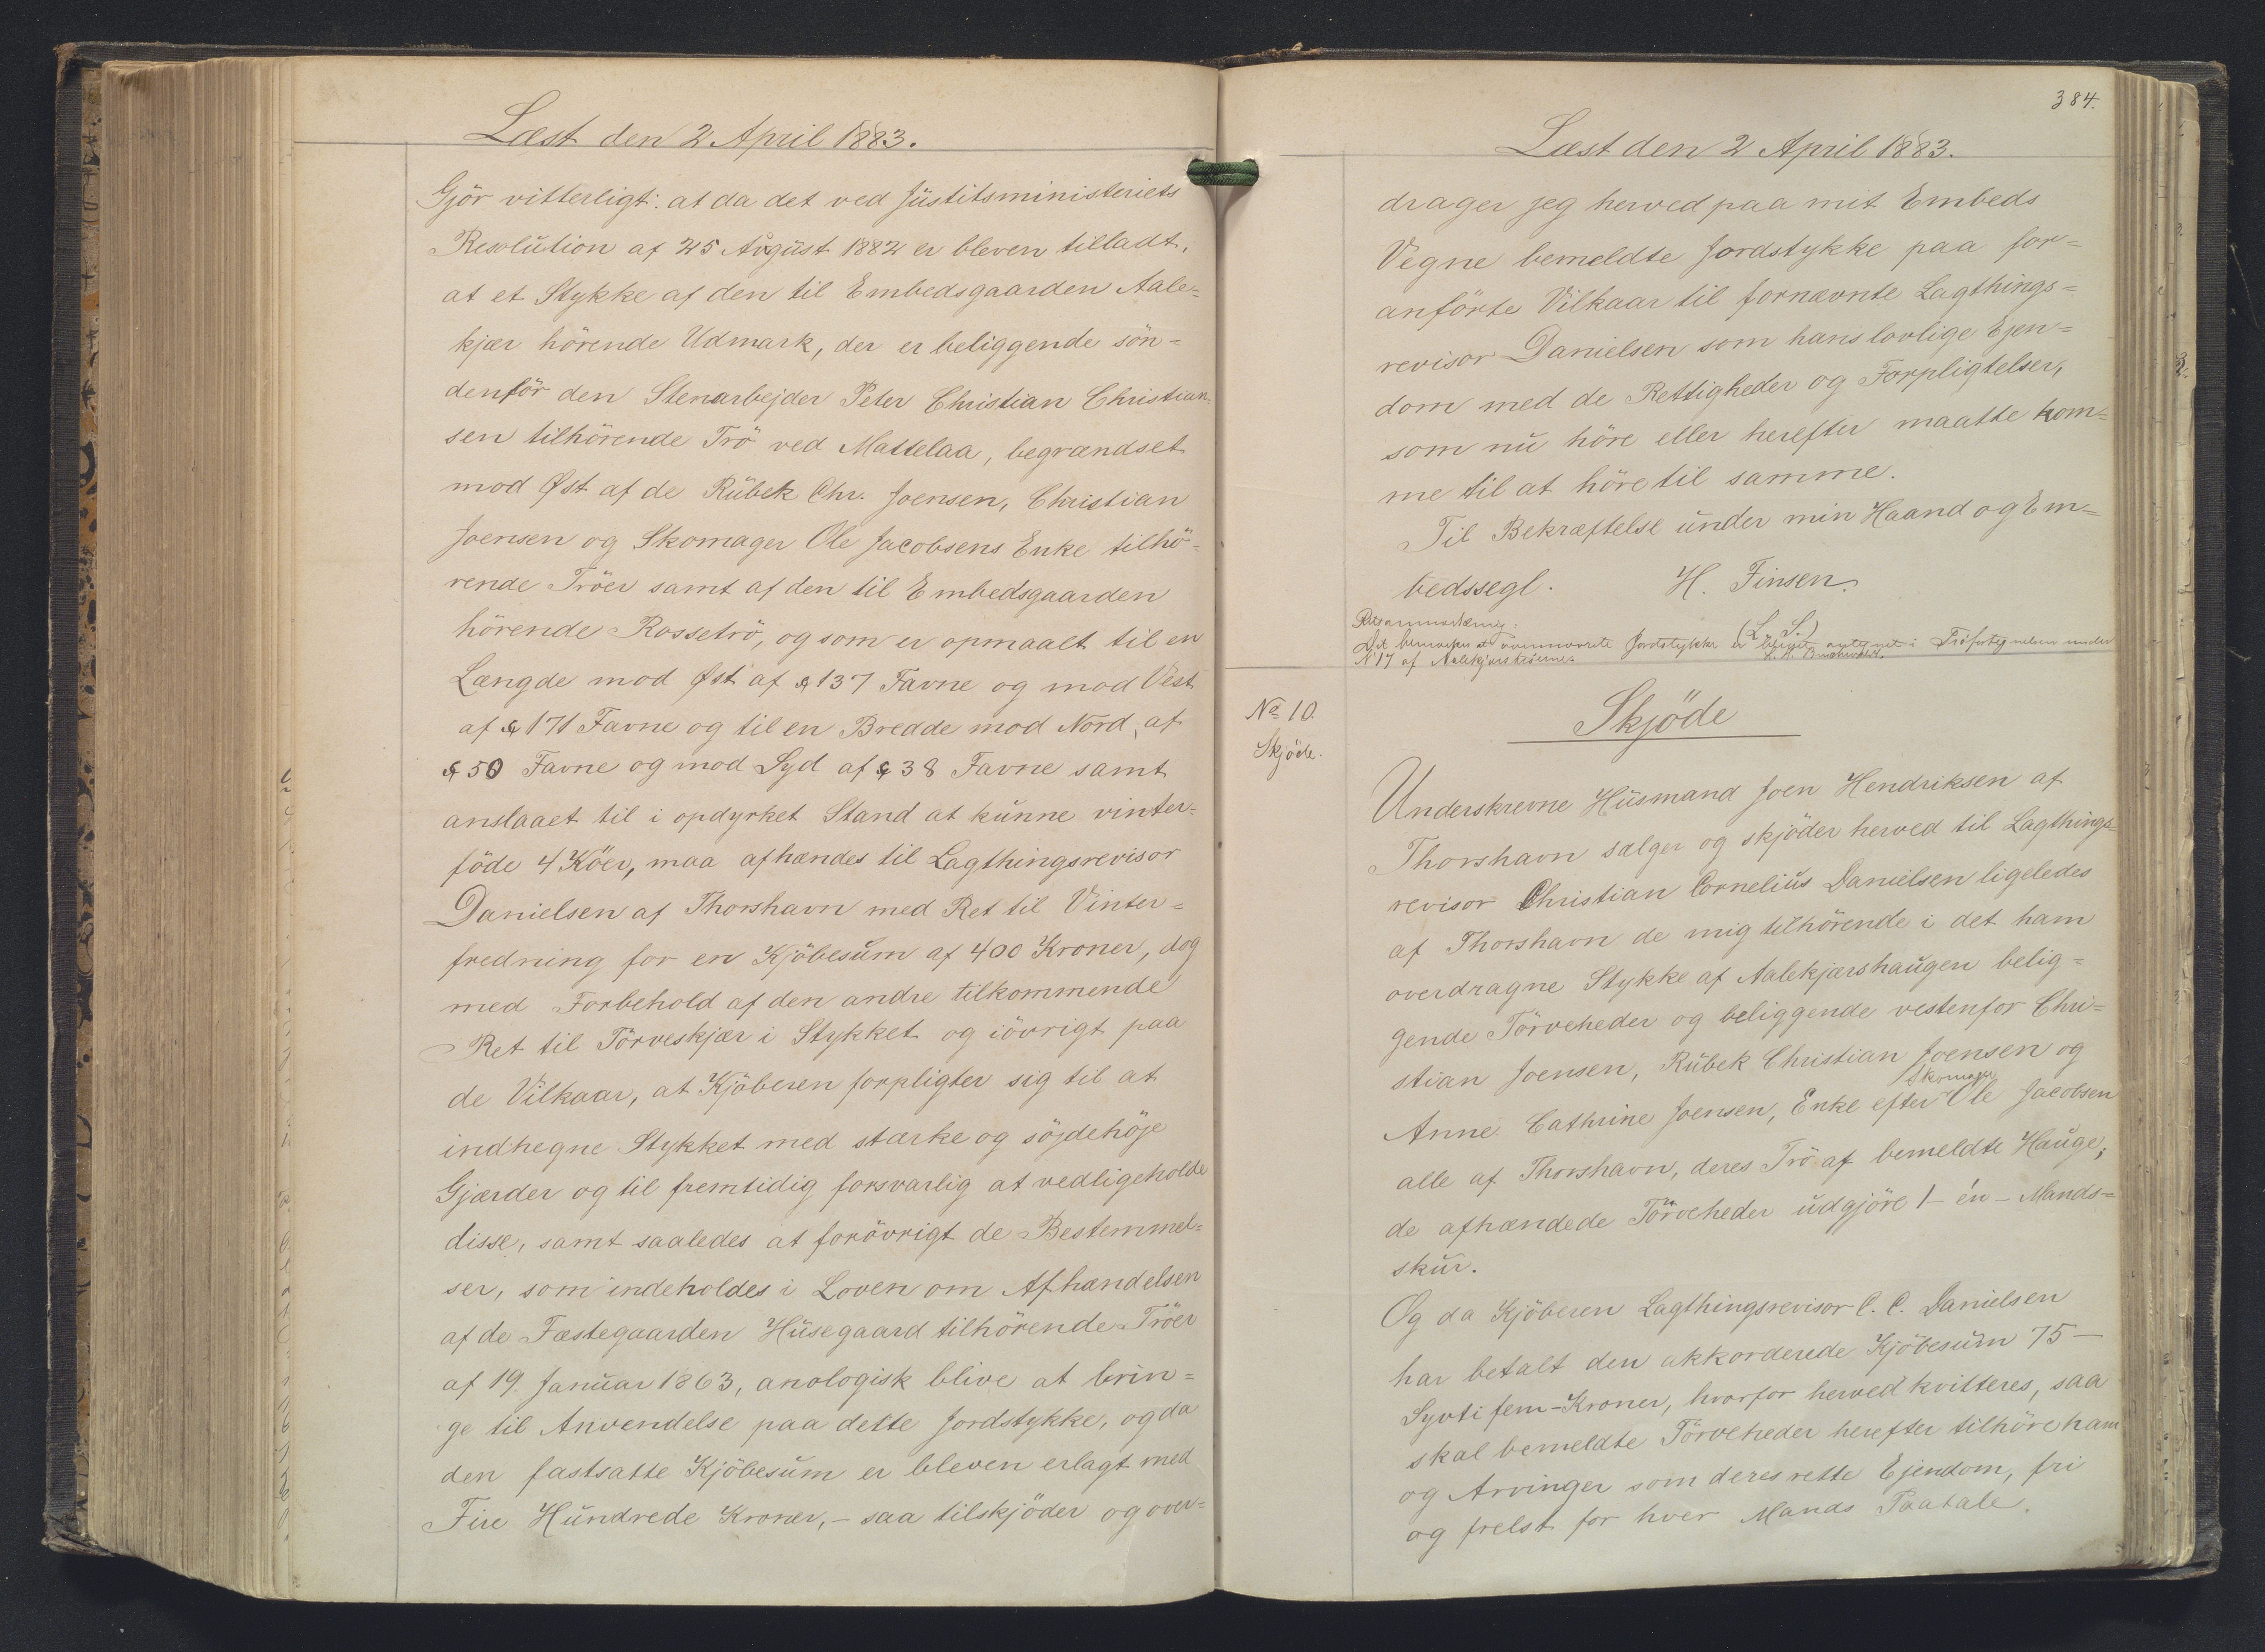 Læst den 2 April 1883.
Gjör vitterligt: at da det ved Jüstitsministeriets
Resolütion af 25 Aügüst 1882 er bleven tilladt,
at et Stykke af den til Embedsgaarden Aale-
kjær hörende Udmark, der er beliggende sön-
denför den Stenarbejder Peter Christian Christian-
sen tilhörende Trö ved Mattelaa, begrændset
mod Øst af de Rübek Chr. Joensen, Christian
Joensen og Skomager Ole Jacobsens Enke tilhö-
rende Tröer samt af den til Embedsgaarden
hörende Rossetrö, og som er opmaalt til en
Længde mod Øst af 137 Favne og mod Vest
af 171 Favne og til en Bredde mod Nord, af
50 Favne og mod Syd af 38 Favne samt
anslaaet til i opdyrket Stand at künne vinter-
föde 4 Köer, maa afhændes til Lagthingsrevisor
Danielsen af Thorshavn med Ret til Vinter-
fredning for en Kjöbesüm af 400 Kroner, dog
med Forbehold af den andre tilkommende
Ret til Törveskjær i Stykket og iövrigt paa
de Vilkaar, at Kjöberen forpligter sig til at
indhegne Stykket med stærke og söjdehöje
Gjærder og til fremtidig forsvarlig at vedligeholde
disse, samt saaledes at forövrigt de Bestemmel-
ser, som indeholdes i Loven om Afhændelsen
af de Fæstegaarden Hüsegaard tilhörende Tröer
af 19 Janüar 1863, anologisk blive at brin-
ge til Anvendelse paa dette Jordstykke, og da
den fastsatte Kjöbesüm er bleven erlagt med
Fire Hündrede Kroner, - saa tilskjöder og over-
384.
Læst den 2 April 1883.
drager jeg herved paa mit Embeds
Vegne bemeldte Jordstykke paa for-
anförte Vilkaar til fornævnte Lagthings-
revisor Danielsen som hans lovlige Ejen-
dom med de Rettigheder og Forpligtelser,
som nü höre eller herefter maatte kom-
me til at höre til samme.
Til Bekræftelse ünder min Haand og Em-
bedssegl. H. Finsen.
(L. S.)
Det bemærkes at Jordstykke er blevet i under
N° 17 af Aalekjærströerne.
No 10.
Skjöde.
Skjöde
Underskrevne Hüsmand Joen Hendriksen af
Thorshavn sælger og skjöder herved til Lagthings-
revisor Christian Corneliüs Danielsen ligeledes
af Thorshavn de mig tilhörende i det ham
overdragne Stykke af Aalekjærshaügen belig-
gende Törveheder og beliggende vestenfor Chri-
stian Joensen, Rübek Christian Joensen og
Anne Cathrine Joensen, Enke efter Skomager Ole Jacobsen
alle af Thorshavn, deres Trö af bemeldte Haüge,
de afhændede Törveheder üdgjöre 1 - én - Mands-
skür.
Og da Kjöberen Lagthingsrevisor C. C. Danielsen
har betalt den akkorderede Kjöbesüm 75 -
Syvti fem - Kroner, hvorfor herved kvitteres, saa
skal bemeldte Törveheder herefter tilhöre ham
og Arvinger som deres rette Ejendom, fri
og frelst for hver Mands Paatale.